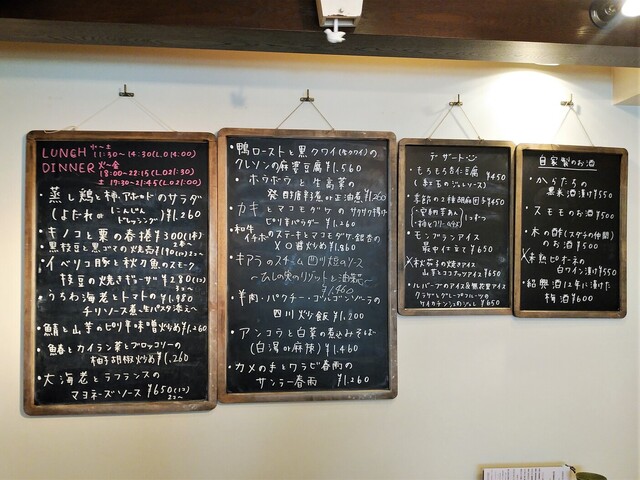 LUNCH 火~土 11:30~14:30(L.O 14:00)
DINNER 火~金 18:00~22:15(L.O21:30)
土 17:30~21:45(L.O21:00)
蒸し鶏と柿、アボカドのサラダ
(よだれ or にんじんドレッシング) ¥1,260
・キノコと栗の春捲 ¥300(1本)
・黒枝豆と黒ゴマの
・イベリコ豚と秋刀魚のスモーク
枝豆の焼きギョーザ ¥280(1コ)
・うちわ海老とトマトの ¥1,980
チリソース煮、生パスタ添え
・鯖と山芋のピリ辛味噌炒め ¥1,260
・鰆とカイラン菜とブロッコリーの
柚子胡椒炒め ¥1,260
・大海老とラフランスの
マヨネーズソース ¥650(1コ)
2コ~
・鴨ローストと黒クワイ(セロリ)の
クレソンの麻婆豆腐 ¥1,560
・ホウボウと生高菜の
発酵唐辛子煮 or 正油煮 ¥1,260
・カキとマコモダケのサクサク揚げ
ピリ辛 ¥1,260
・和牛イチボのステーキとマコモダケ、銀杏の
XO醤炒め ¥1,860
・キアラのスチーム 四川
~ムカゴの実のリゾットと油菜~
¥1,460
・羊肉・パクチー・ゴルゴンゾーラの
四川炒飯 ¥1,200
・アンコウと白菜の煮込みそば
(白湯 or 麻辣) ¥1,460
・カメの手とワラビ春雨の
サンラー春雨 ¥1,260
デザート
・もちもち杏仁豆腐 ¥450
(紅玉のジュレソース)
・季節の2種胡麻団子 ¥450
1コずつ
・モンブランアイス
最中仕立て ¥650
・秋茄子の焼きアイス
山芋とココナッツアイス ¥650
・ルバーブのアイス
クラゲとグレープフルーツの
ケイカチンシュのジュレ ¥650
自家製のお酒
・からたちの
果実酒漬け ¥550
・スモモのお酒 ¥500
・木の酢(スダチの仲間)
のお酒 ¥500
・未熟ピオーネの
白ワイン漬け ¥550
・紹興酒12年に漬けた
梅酒 ¥600